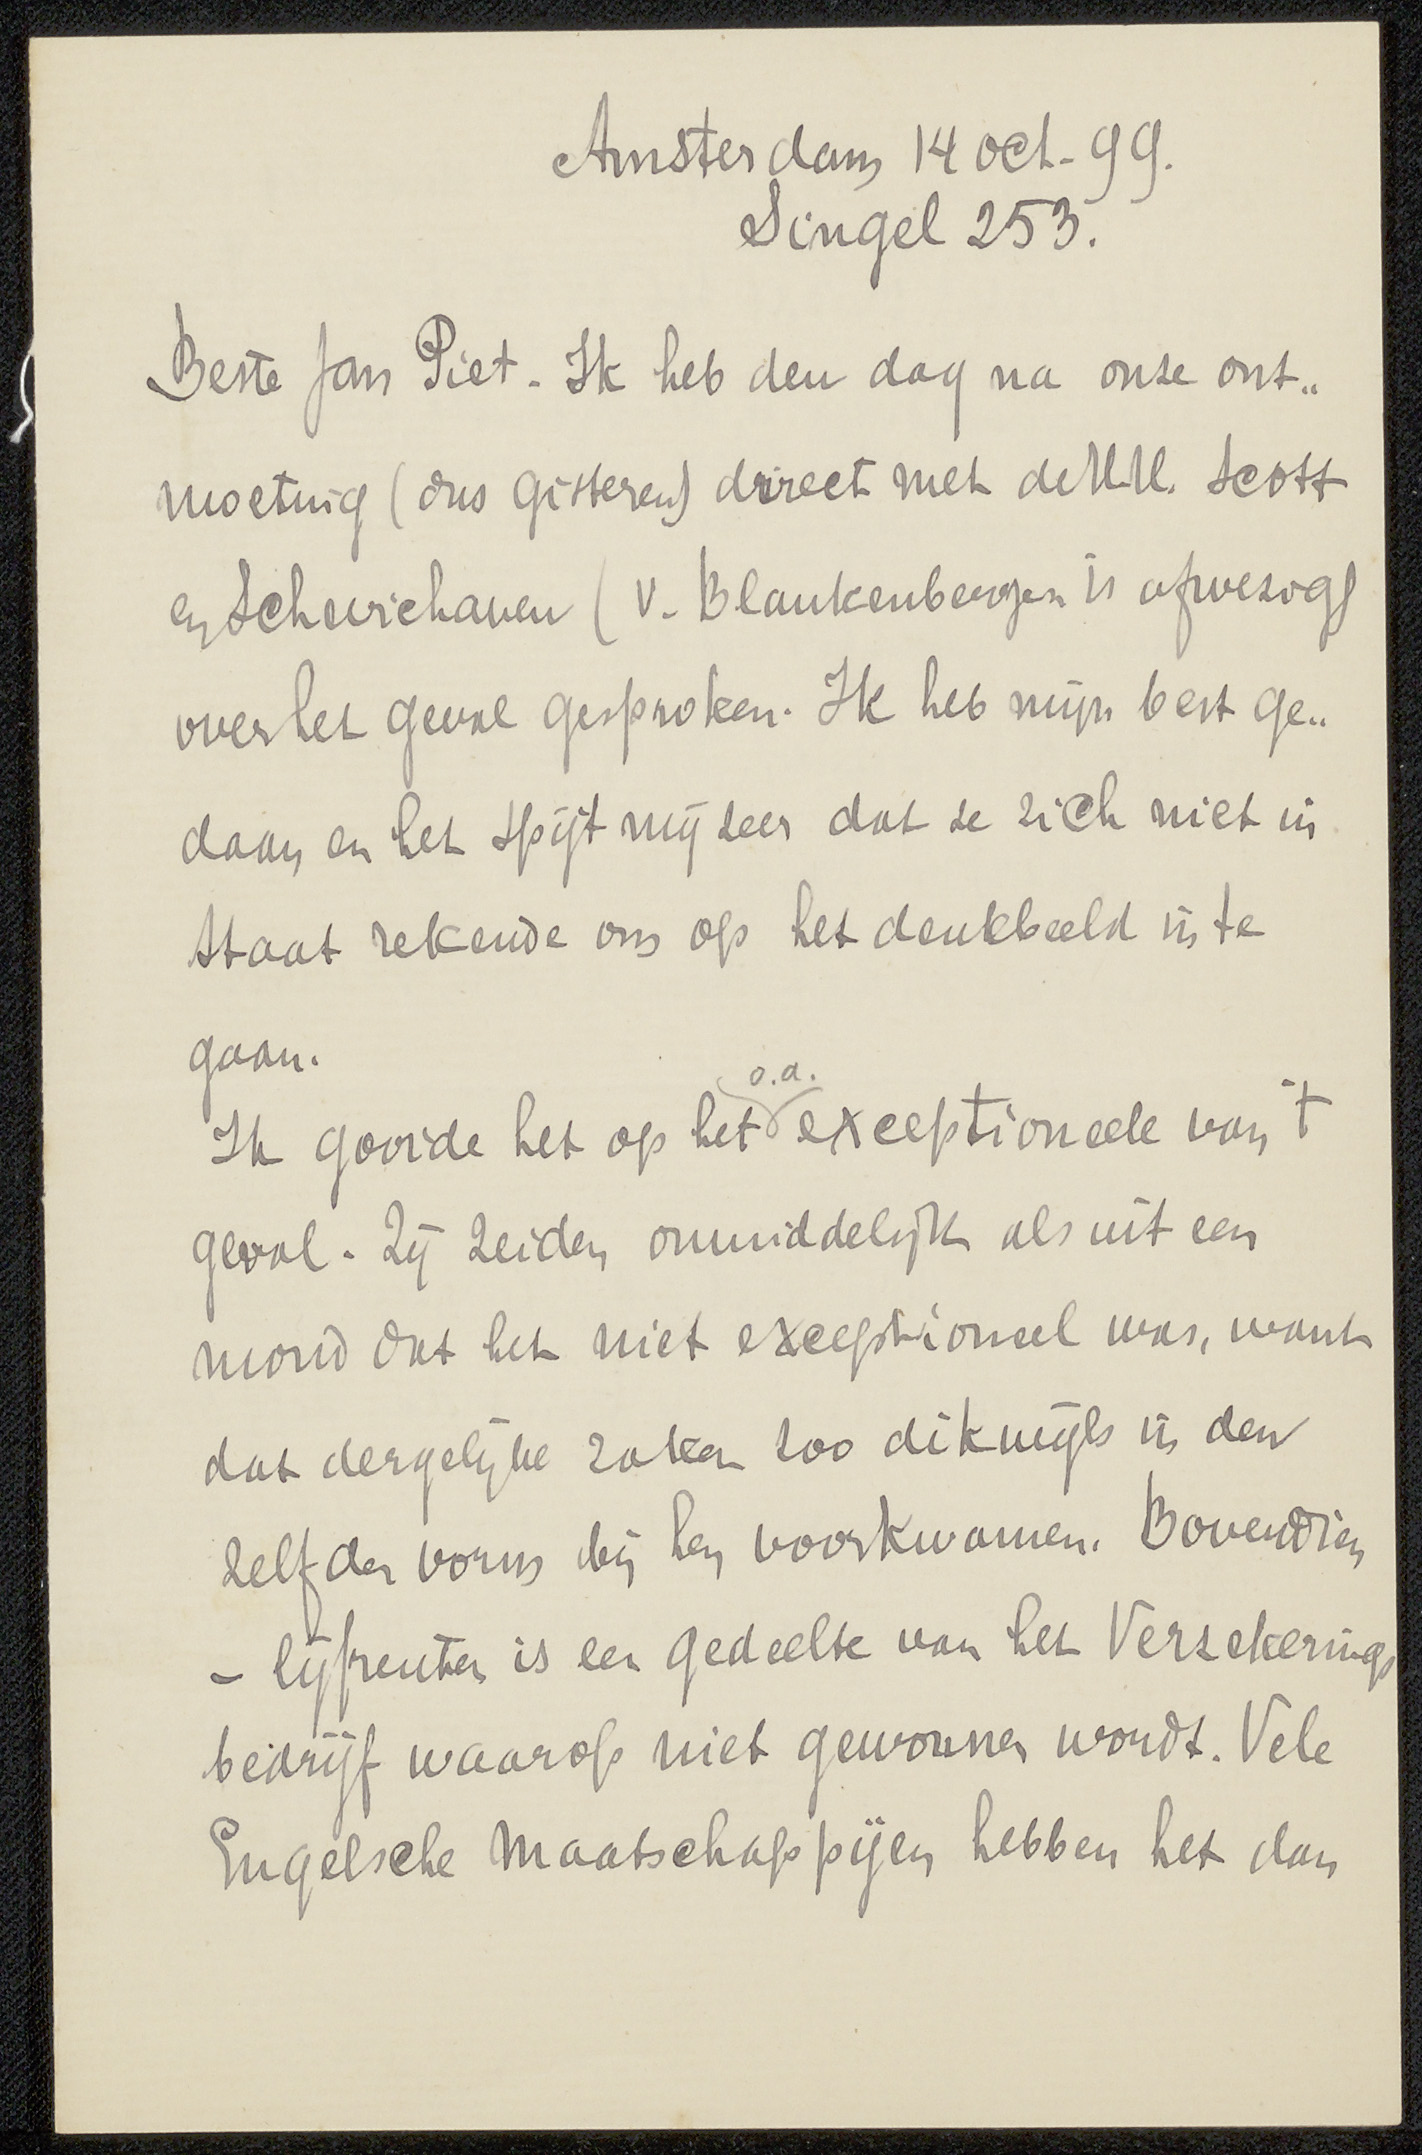 Amsterdam 14 oct. 99.
Singel 253.
Beste Jan Piet. Ik heb den dag na onze ont..
moeting (dus gisteren) direct met de H.H. Scott
en Schuvichaven (v. Blankenbergen is afwezig)
over het geval gesproken. Ik heb mijn best ge..
daan en het spijt mij zeer dat ze zich niet in
staat rekende om op het denkbeeld in te
gaan.
Ik gooide het op het o.a. exceptioneele van 't
geval. Zij zeiden onmiddelijk als uit een
mond dat het niet exceptioneel was, want
dat dergelijke zaken zoo dikwijls in den
zelfden vorm bij hen voorkwamen. Bovendien
- lijfrenten is een gedeelte van het Verzekerings
bedrijf waarop niet gewonnen wordt. Vele
Engelsche Maatschappijen hebben het dan